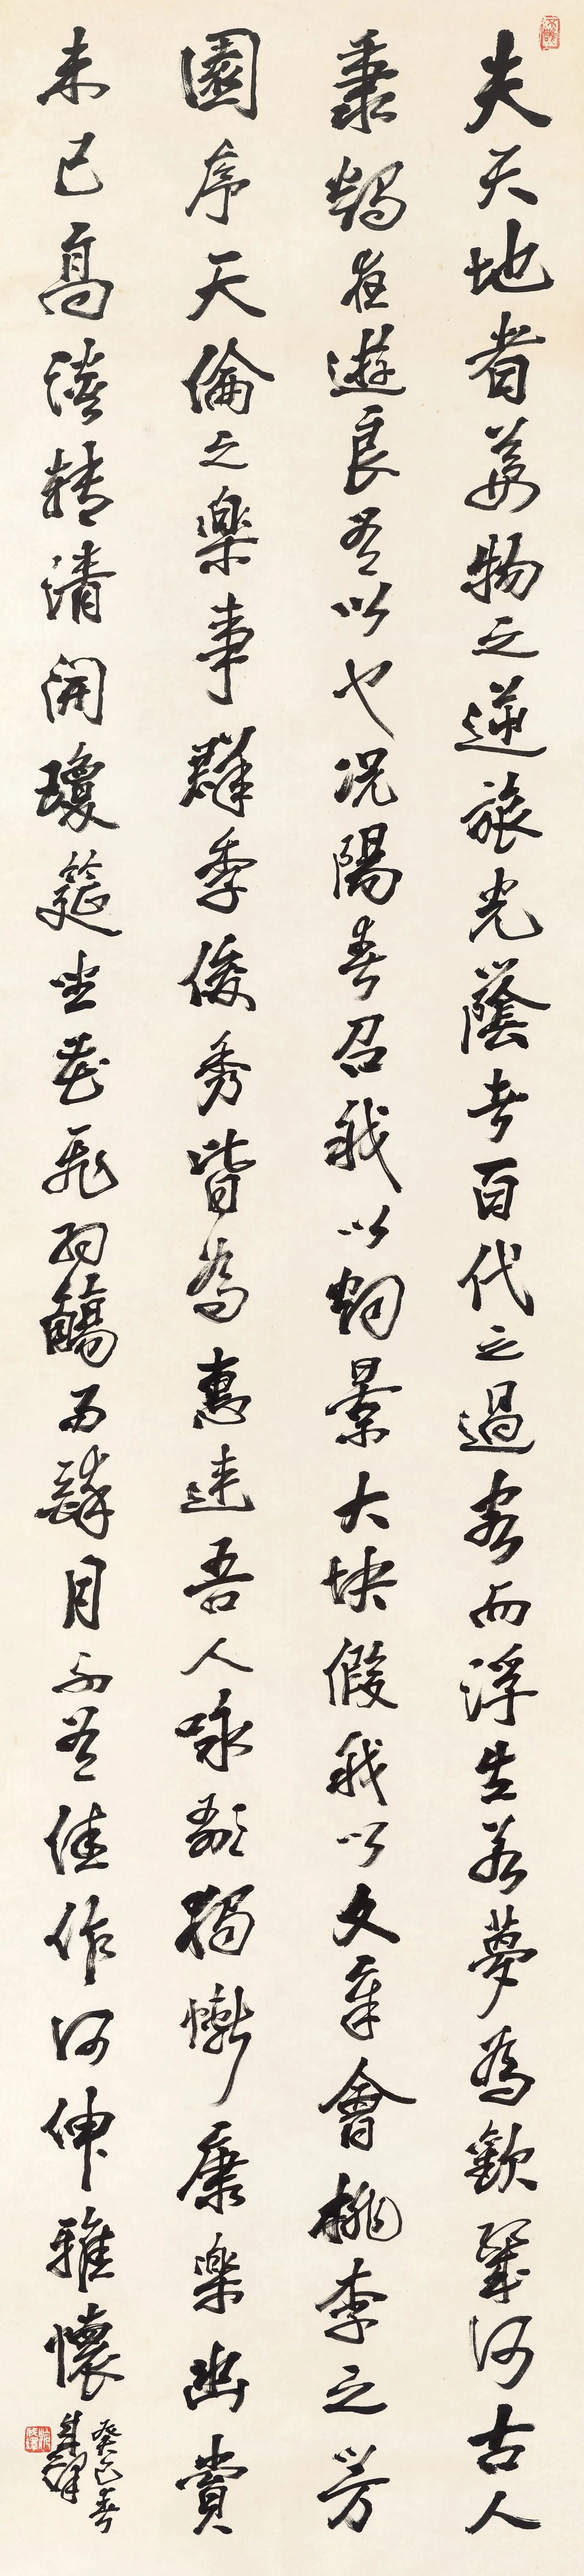 夫天地者萬物之逆旅光蔭者百代之過客而浮生若夢為歡幾何古人
秉燭夜遊良有以也況陽春召我以烟景大块假我以文章會桃李之芳
園序天倫之楽事群季俊秀皆為惠連吾人詠歌獨慚康楽幽賞
未已高談轉清開瓊筵坐花飛羽觴而醉月不有佳作何伸雅懷
癸巳春